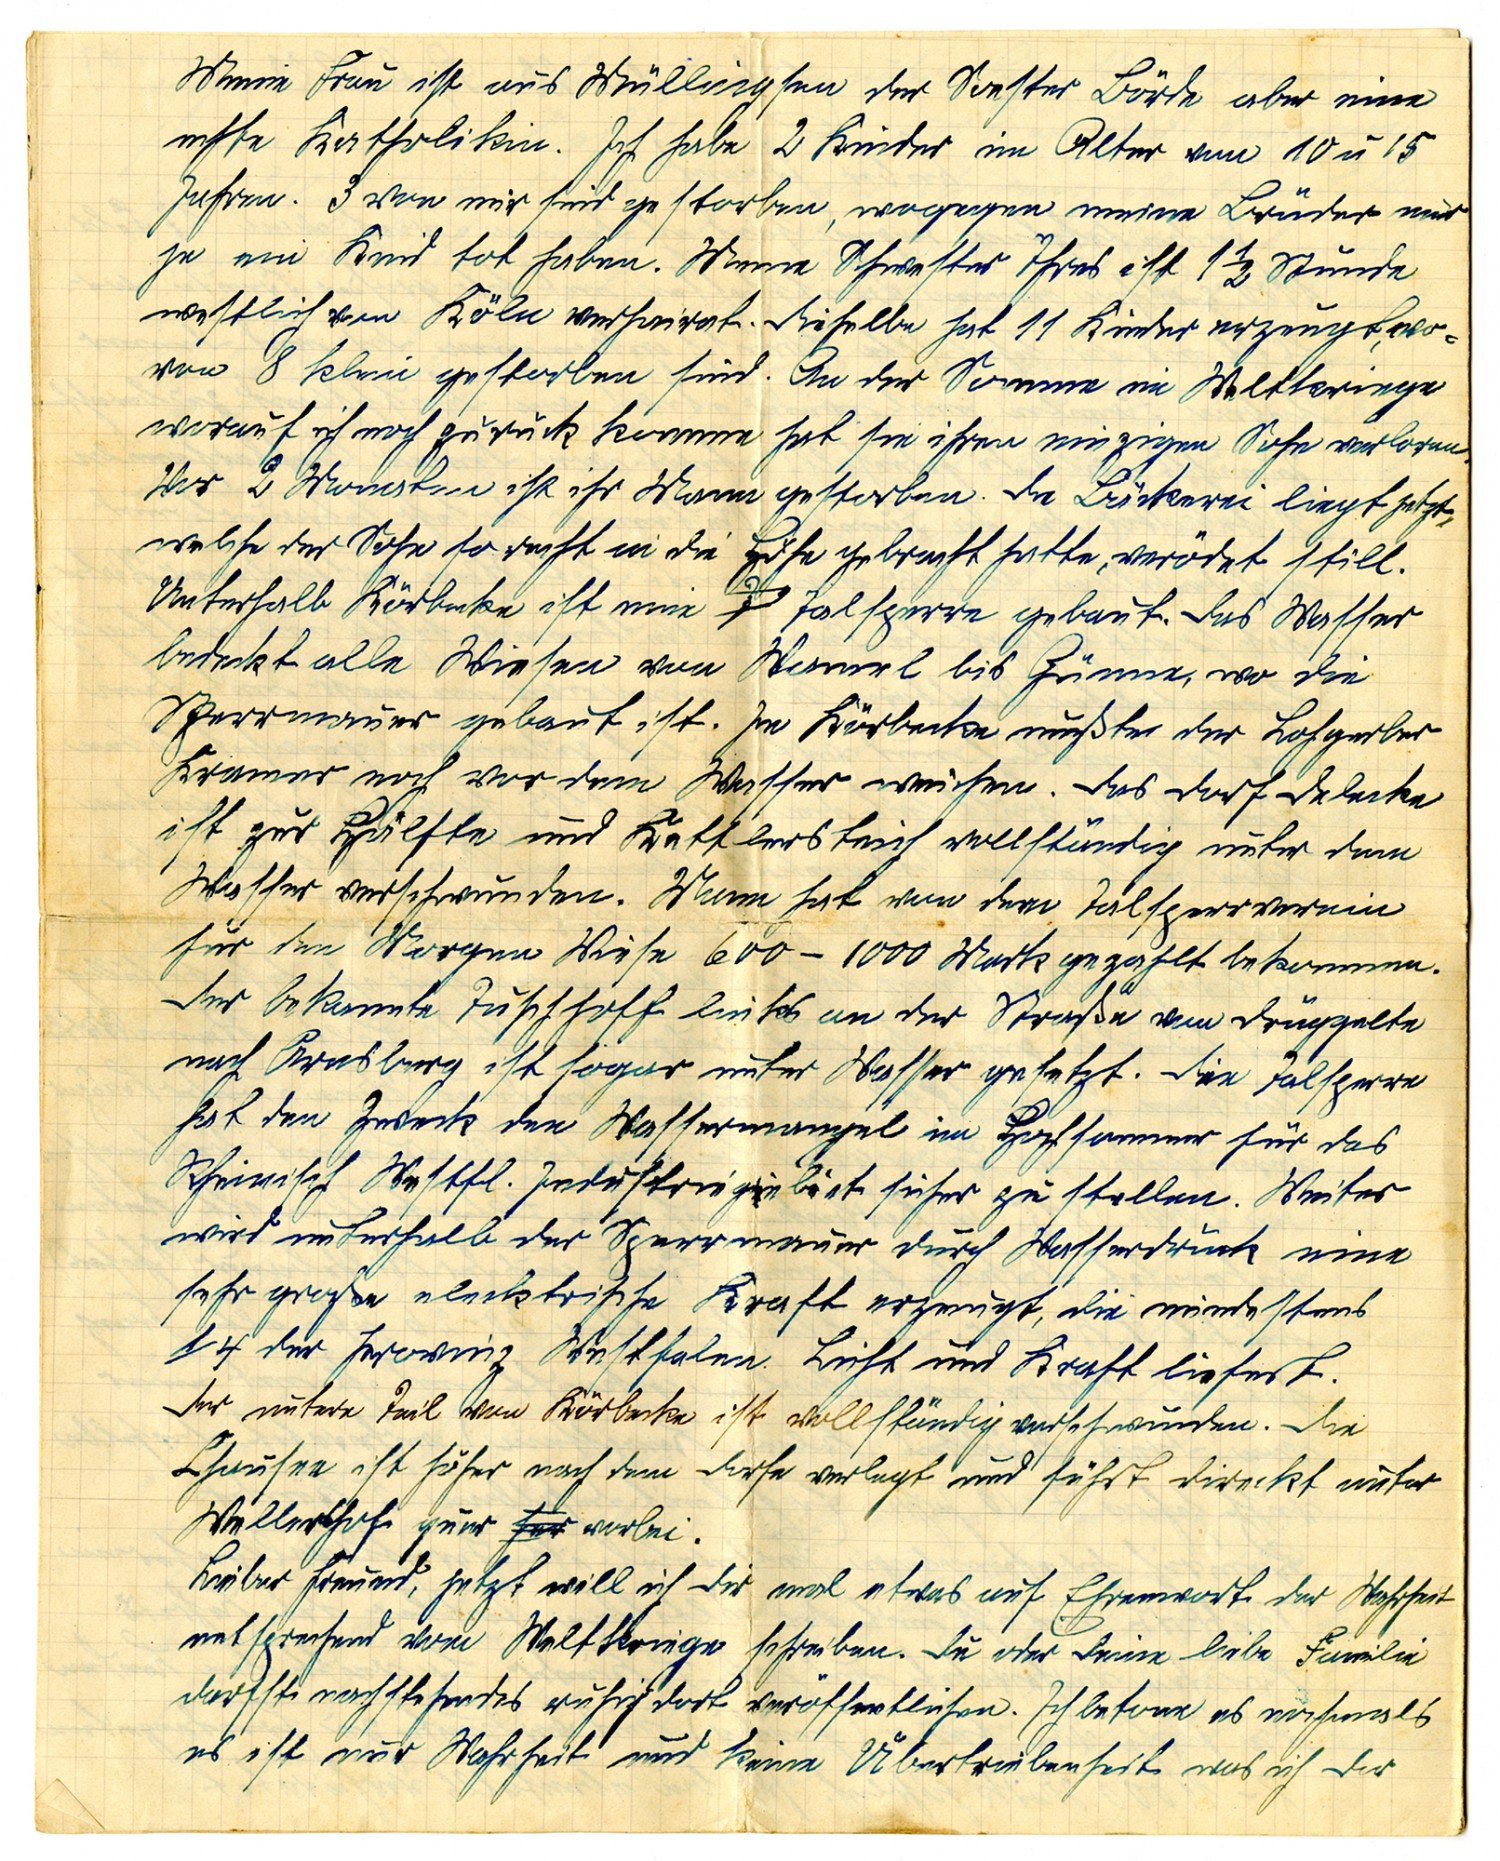 Meine Frau ist aus Müllingsen der Soester Börde aber eine
echte Katholikin. Ich habe 2 Kinder im Alter von 10 u 15
Jahren. 3 von mir sind gestorben, wogegen meine Brüder nur
je ein Kind tot haben. Meine Schwester Thres ist 1 1/2 Stunde
westlich von Köln verheirat. Dieselbe hat 11 Kinder erzeugt, wo=
von 8 klein gestorben sind. An der Somme im Weltkriege
worauf ich noch zurück komme hat sie ihren einzigen Sohn verloren.
Vor 2 Monaten ist ihr Mann gestorben. Die Bäckerei liegt jetzt,
welche der Sohn so recht in die Höhe gebracht hatte, verödet still.
Unterhalb Körbecke ist eine Talsperre gebaut. Das Wasser
bedeckt alle Wiesen von Wamel bis Günne, wo die
Sperrmauer gebaut ist. In Körbecke mußte der Lohgerber
Kramer noch vor dem Wasser weichen. Das Dorf Delecke
ist zur Hälfte und Kettlersteich vollständig unter dem
Wasser verschwunden. Mann hat von dem Talsperrverein
für den Morgen Wiese 600 – 1000 Mark gezahlt bekommen.
Der bekannte Tuschhoff links an der Straße von Drüggelte
nach Arnsberg ist sogar unter Wasser gesetzt. Die Talsperre
hat den Zweck den Wassermangel im Hochsommer für das
Rheinisch Westfl. Industriegebiet sicher zu stellen. Weiter
wird unterhalb der Sperrmauer durch Wasserdruck eine
sehr große elecktrische Kraft erzeugt, die mindestens
1/4 der Perovinz Westfalen Licht und Kraft liefert.
Der untere Teil von Körbecke ist vollständig verschwunden. Die
Chausee ist höher nach dem Dorfe verlegt und führt direckt unter
Wellershof quer her vorbei.
Lieber Freund, jetzt will ich dir mal etwas auf Ehrenwort der Wahrheit
entsprechend vom Weltkriege schreiben. Du oder Deine liebe Familie
darfst nachstehendes ruhig dort veröffentlichen. Ich betone es nochmals
es ist nur Wahrheit und keine Übertriebenheit was ich Dir